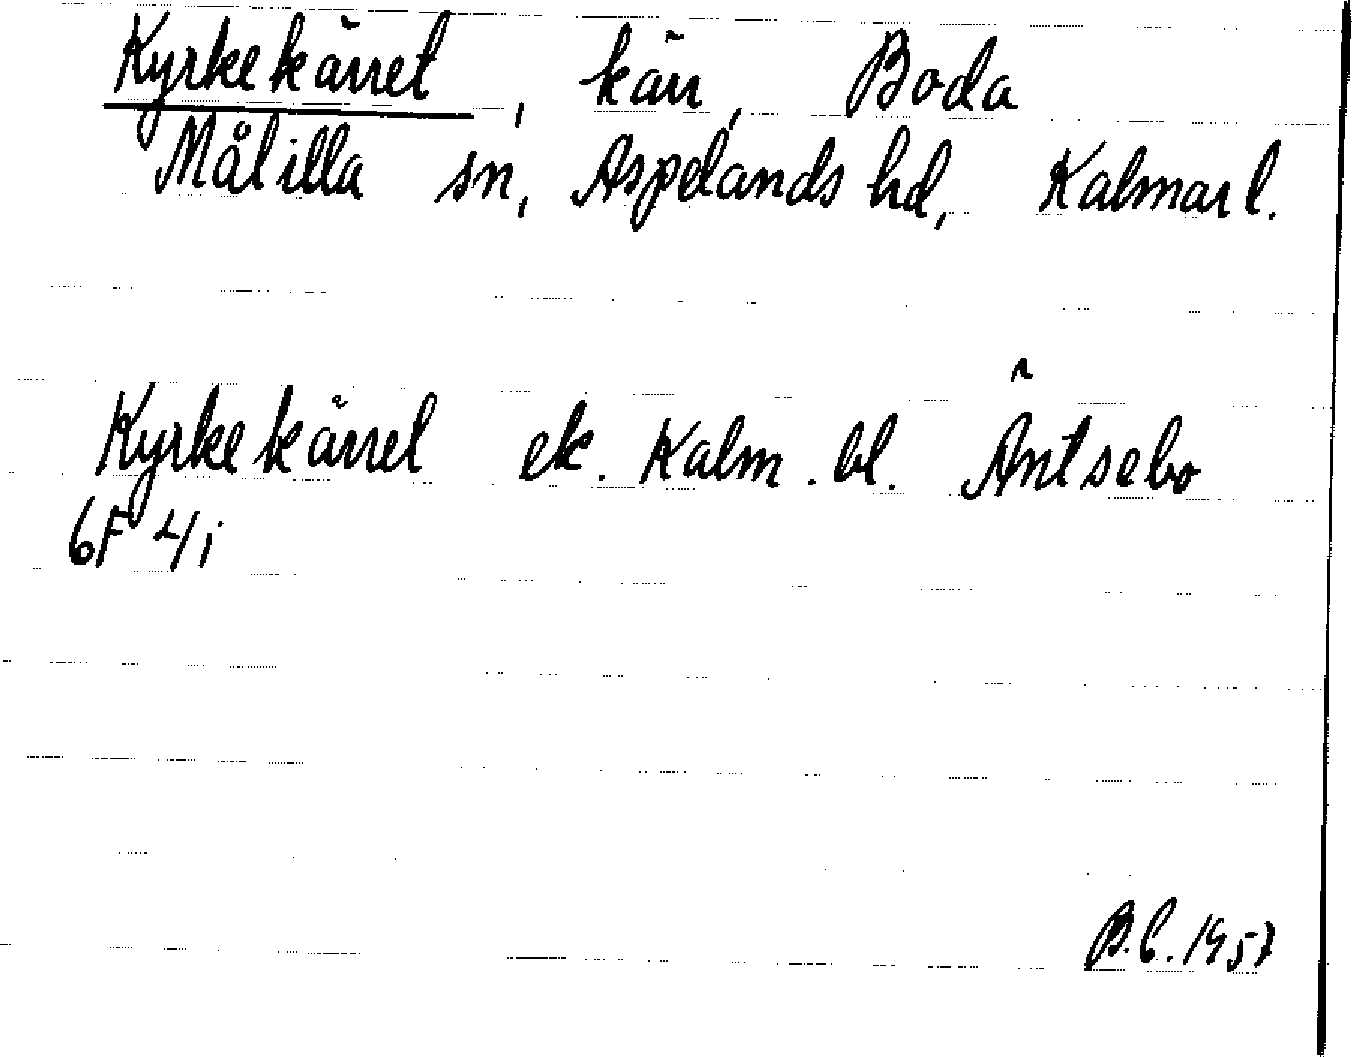 Kyrkekärret, kärr, Boda
Målilla sn, Aspelands hd, Kalmar l.
Kyrkekärret ek. Kalm. bl. Äntsebo
6F 4i
B.C. 1957